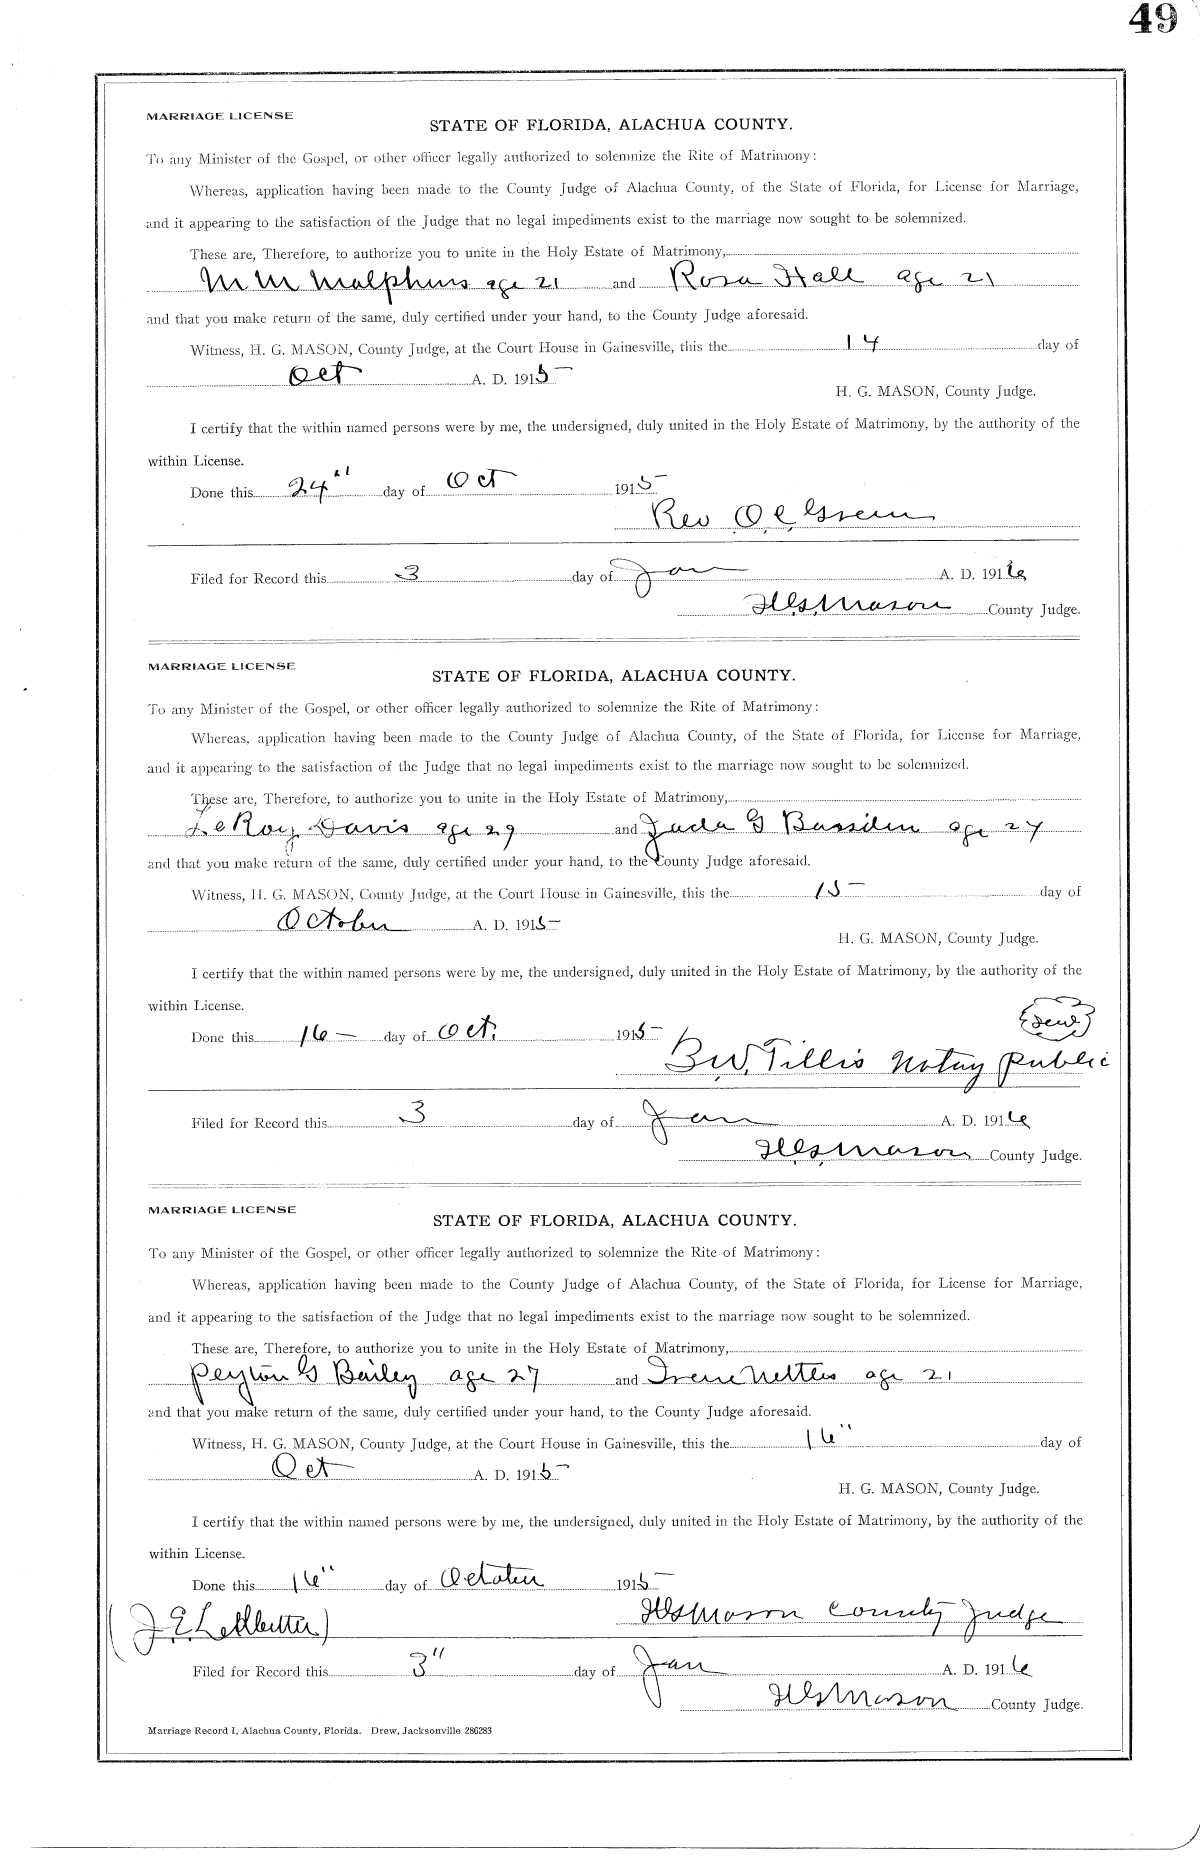 49
MARRIAGE LICENSE
STATE OF FLORIDA, ALACHUA COUNTY.
To any Minister of the Gospel, or other officer legally authorized to solemnize the Rite of Matrimony:
Whereas, application having been made to the County Judge of Alachua County, of the State of Florida, for License for Marriage,
and it appearing to the satisfaction of the Judge that no legal impediments exist to the marriage now sought to be solemnized.
These are, Therefore, to authorize you to unite in the Holy Estate of Matrimony,
M M Malphurs age 21 and Rosa Hall age 21
and that you make return of the same, duly certified under your hand, to the County Judge aforesaid.
Witness, H. G. MASON, County Judge, at the Court House in Gainesville, this the 14 day of
Oct A. D. 1915
H. G. MASON, County Judge.
I certify that the within named persons were by me, the undersigned, duly united in the Holy Estate of Matrimony, by the authority of the
within License.
Done this 24" day of Oct 1915
Rev O. C. Green
Filed for Record this 3 day of Jan A. D. 1916
H. G. Mason County Judge.
MARRIAGE LICENSE
STATE OF FLORIDA, ALACHUA COUNTY.
To any Minister of the Gospel, or other officer legally authorized to solemnize the Rite of Matrimony:
Whereas, application having been made to the County Judge of Alachua County, of the State of Florida, for License for Marriage,
and it appearing to the satisfaction of the Judge that no legal impediments exist to the marriage now sought to be solemnized.
These are, Therefore, to authorize you to unite in the Holy Estate of Matrimony,
LeRoy Davis age 29 and G age
and that you make return of the same, duly certified under your hand, to the County Judge aforesaid.
Witness, H. G. MASON, County Judge, at the Court House in Gainesville, this the 15 day of
October A. D. 1915
H. G. MASON, County Judge.
I certify that the within named persons were by me, the undersigned, duly united in the Holy Estate of Matrimony, by the authority of the
within License.
(Seal)
Done this 16 day of Oct. 1915
B. W. Tillis Notary Public
Filed for Record this 3 day of Jan A. D. 1916
H. G. Mason County Judge.
MARRIAGE LICENSE
STATE OF FLORIDA, ALACHUA COUNTY.
To any Minister of the Gospel, or other officer legally authorized to solemnize the Rite of Matrimony:
Whereas, application having been made to the County Judge of Alachua County, of the State of Florida, for License for Marriage,
and it appearing to the satisfaction of the Judge that no legal impediments exist to the marriage now sought to be solemnized.
These are, Therefore, to authorize you to unite in the Holy Estate of Matrimony,
Peyton G Bailey age 27 and Irene Nettles age 21
and that you make return of the same, duly certified under your hand, to the County Judge aforesaid.
Witness, H. G. MASON, County Judge, at the Court House in Gainesville, this the 16" day of
Oct A. D. 1915
H. G. MASON, County Judge.
I certify that the within named persons were by me, the undersigned, duly united in the Holy Estate of Matrimony, by the authority of the
within License.
Done this 16" day of October 1915
(J. E. Ledbetter) H G Mason County Judge
Filed for Record this 3" day of Jan A. D. 1916
H G Mason County Judge.
Marriage Record I, Alachua County, Florida. Drew, Jacksonville 286283